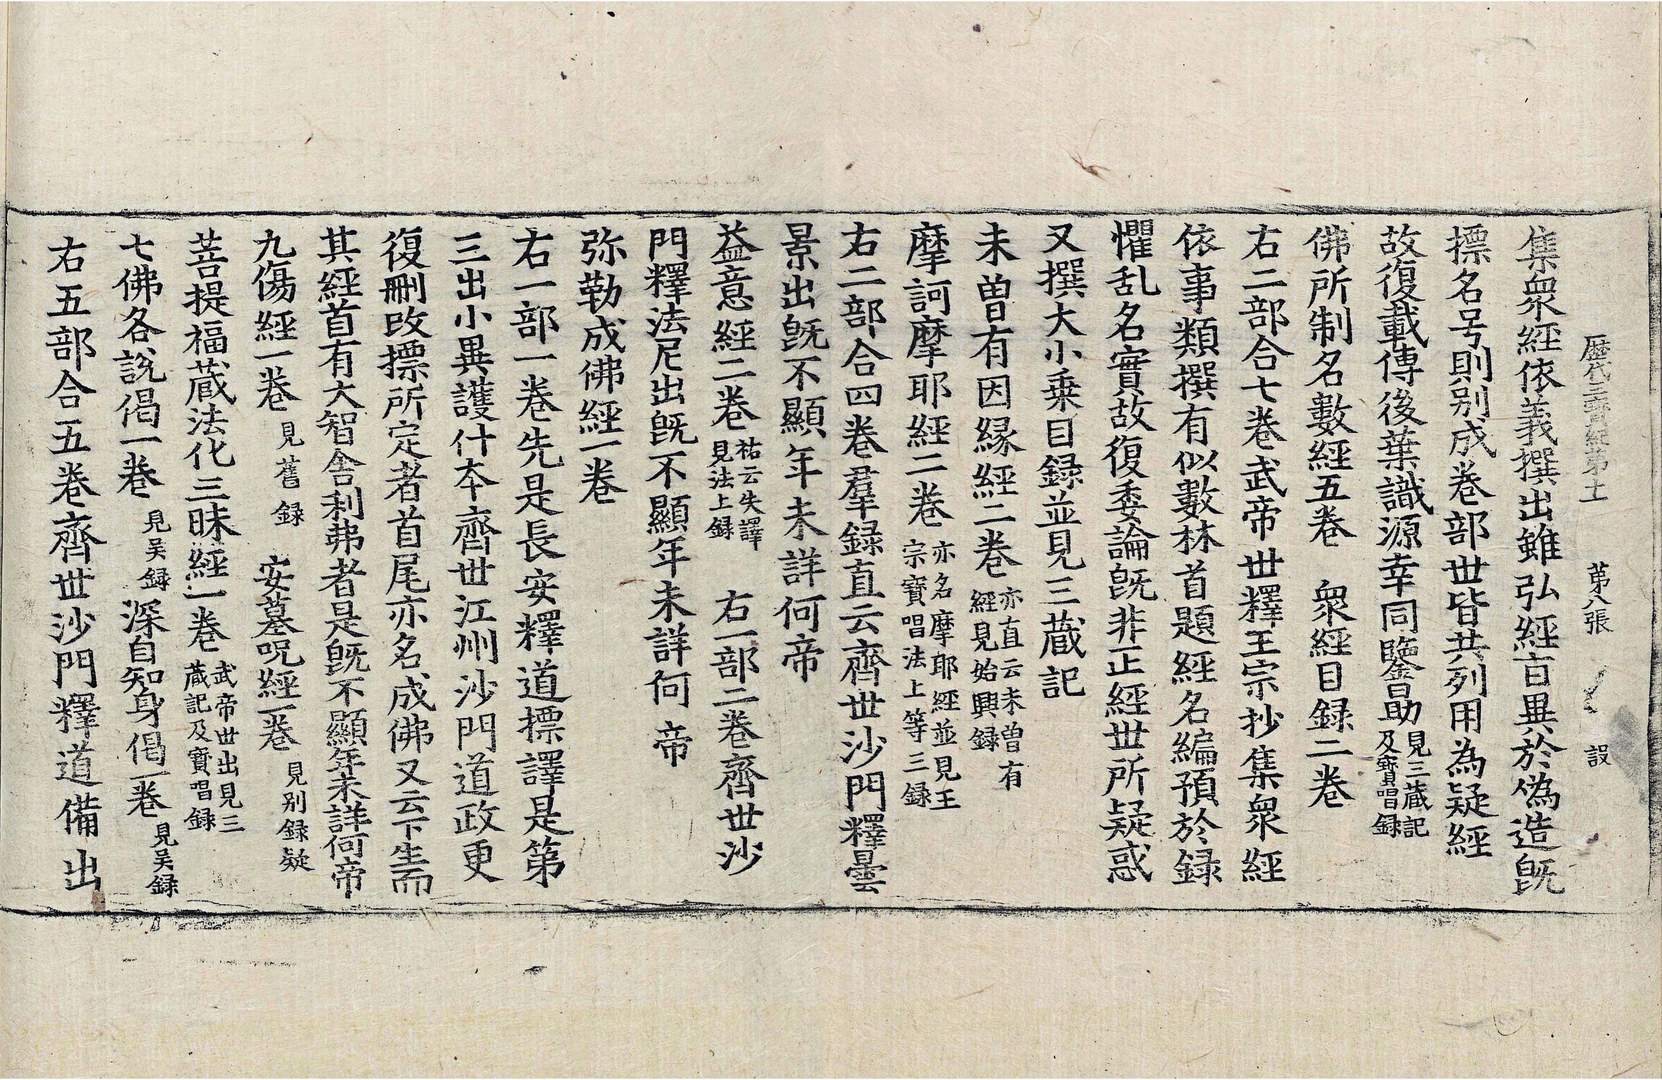 歷代三寶紀第十一 第八張 設
集衆經依義撰出雖弘經百異於僞造旣
摽名号則別成卷部世皆共列用為疑經
故復載傳後葉識源幸同鑒曷助見三藏記及寶唱録
佛所制名數經五卷 衆經目録二卷
右二部合七卷武帝世釋王宗抄集衆經
依事類撰有似數林首題經名編預於録
懼乱名實故復委論旣非正經世所疑惑
又撰大小乗目録並見三藏記
未曽有因緣經二卷亦直云未曽有經見始興録
摩訶摩耶經二卷亦名摩耶經並見王宗寶唱法上等三録
右二部合四卷羣録直云齊世沙門釋曇
景出旣不顯年未詳何帝
益意經二卷祐云失譯見法上録 右一部二卷齊世沙
門釋法尼出旣不顯年未詳何帝
弥勒成佛經一卷
右一部一卷先是長安釋道摽譯是第
三出小異護什夲齊世江州沙門道政更
復刪改摽所定者首尾亦名成佛又云下生而
其經首有大智舍利弗者是旣不顯年未詳何帝
九傷經一卷見舊録 安墓呪經一卷見別録疑
菩提福藏法化三昧經一卷武帝世出見三藏記及寶唱録
七佛各說偈一卷見吴録 深自知身偈一卷見吴録
右五部合五卷齊世沙門釋道備出